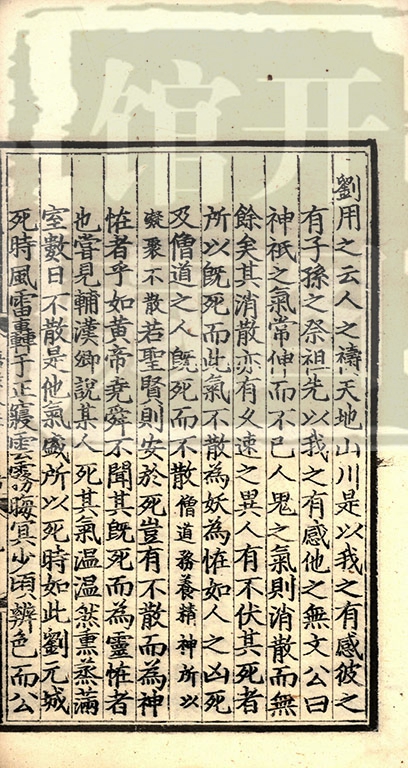 劉用之云人之禱天地山川是以我之有感彼之
有子孫之祭祖先以我之有感他之無文公曰
神祇之氣常伸而不已人鬼之氣則消散而無
餘矣其消散亦有久速之異人有不伏其死者
所以旣死而此氣不散為妖為恠如人之凶死
及僧道之人旣死而不散僧道務養精神所以
凝聚不散若聖賢則安於死豈有不散而為神
恠者乎如黄帝堯舜不聞其旣死而為靈恠者
也嘗見輔漢卿說某人死其氣温温然熏蒸滿
室數日不散是他氣盛所以死時如此劉元城
死時風雷轟于正寢雲霧晦冥少頃辨色而公
开
馆